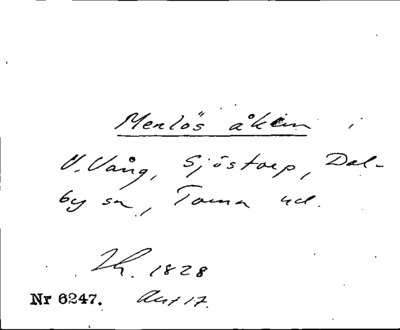 Menlös åken i
V. Vång, Sjöstorp, Dal-
by sn, Torna hd.
Lh. 1828
Nr 6247. Akt 17.